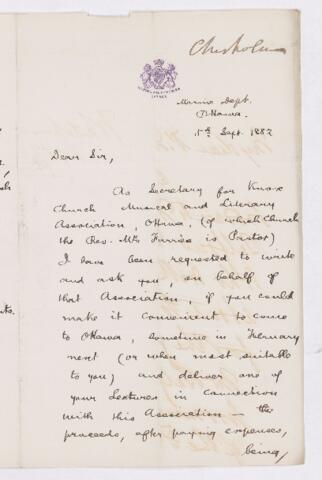 Chisholm
Marine Dept.
Ottawa
5th Sept. 1887
Dear Sir,
As Secretary for Knox
Church Musical and Literary
Association, Ottawa, (of which Church
the Rev. Mr. Farries is Pastor)
I have been requested to write
and ask you, on behalf of
that Association, if you could
make it convenient to come
to Ottawa, sometime in February
next (or when most suitable
to you) and deliver one of
your Lectures in connection
with this Association – the
proceeds, after paying expenses,
being,